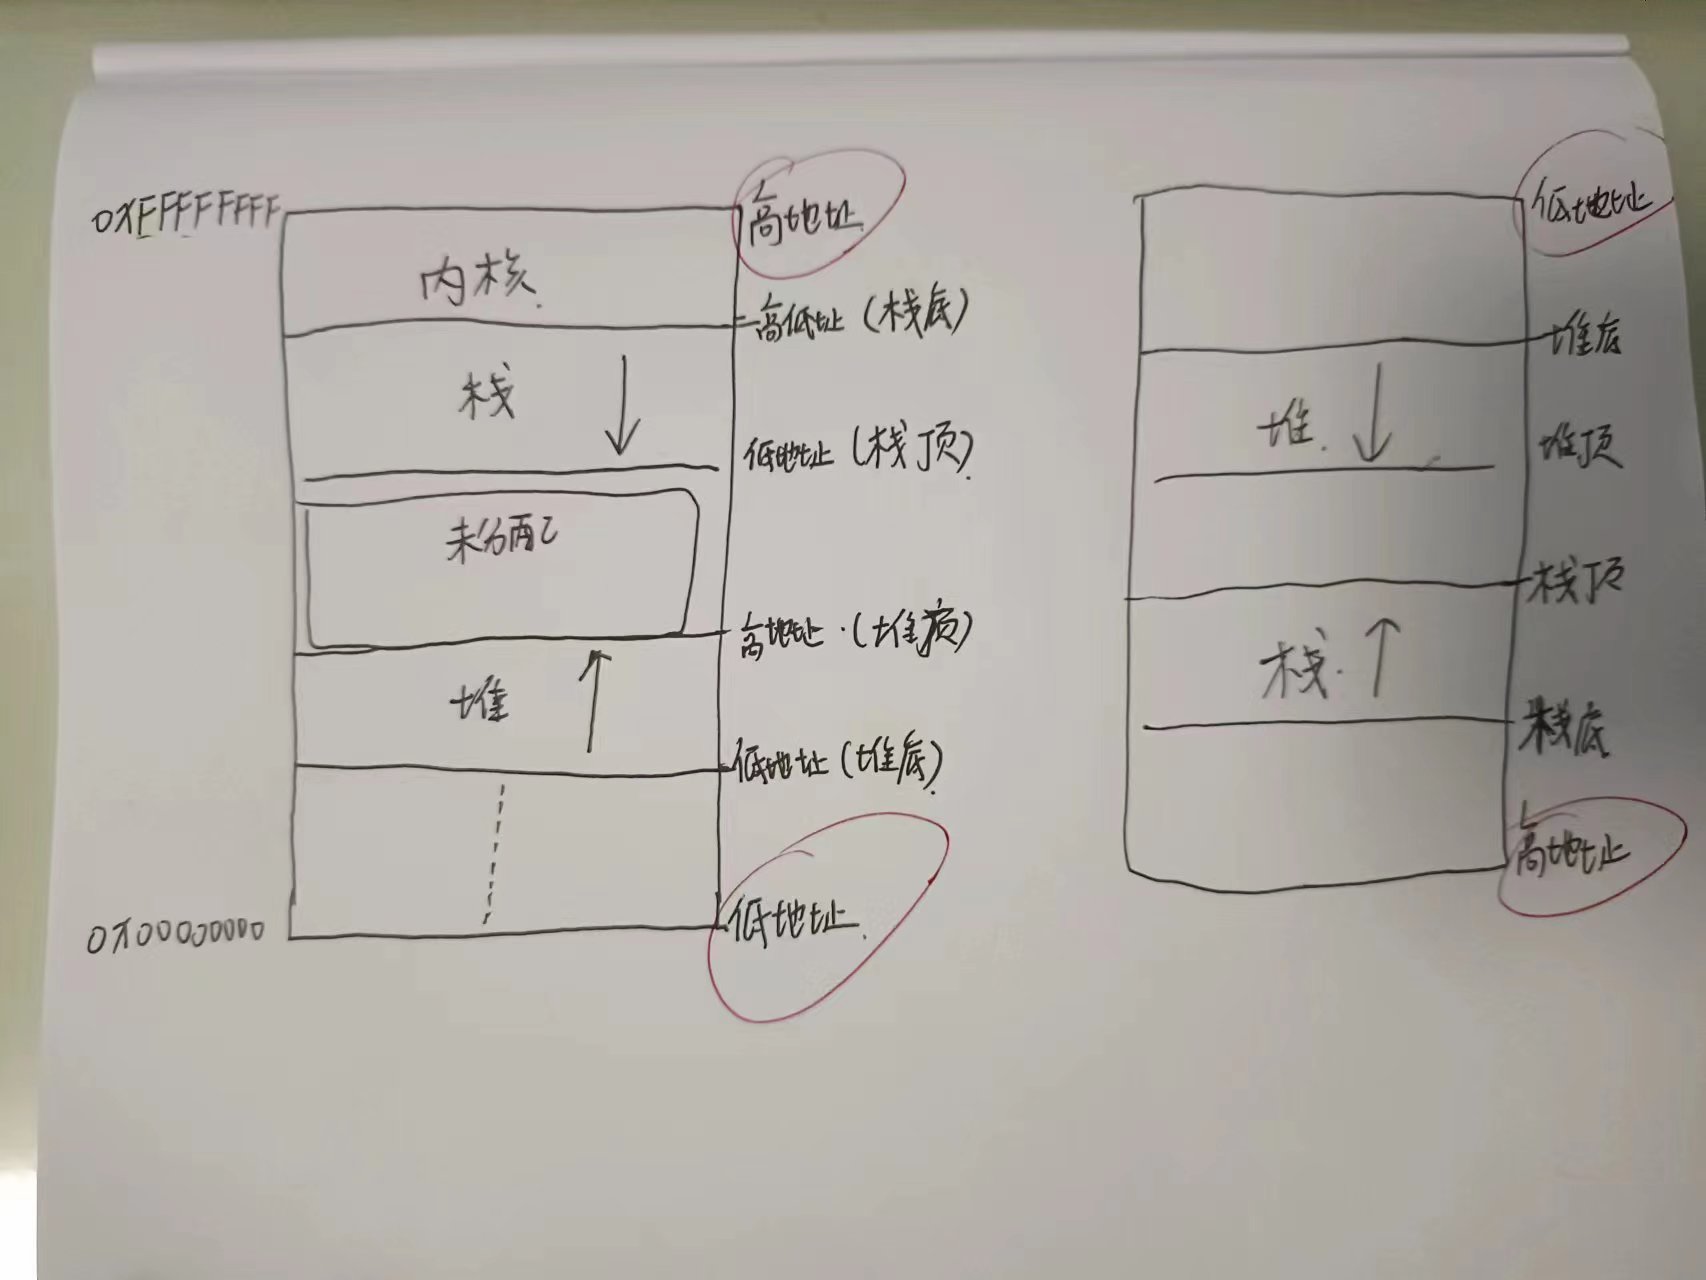 0XFFFFFFFF
高地址
内核
高低址（栈底）
栈
低地址（栈顶）
未分配
高地址（堆顶）
堆
低地址（堆底）
0X00000000
低地址
低地址
堆底
堆
堆顶
栈顶
栈
栈底
高地址